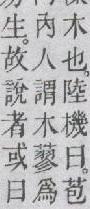 木也。陸機曰。苞
內人謂木蓼爲
生。故說者或曰